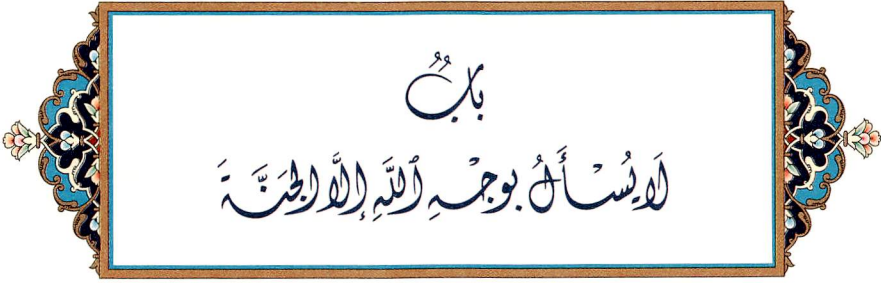 بَابٌ
لَا يُسْأَلُ بِوَجْهِ ٱللَّهِ إِلَّا الْجَنَّةَ